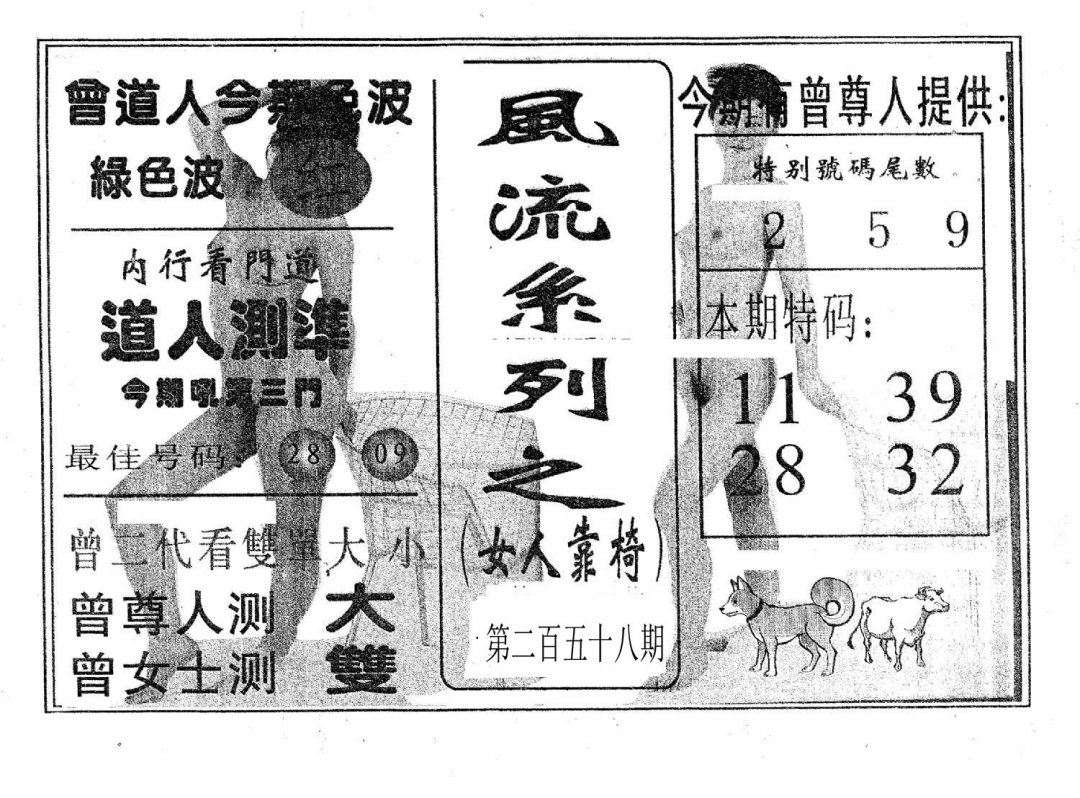 曾道人今期色波
綠色波 红
内行看門道
道人測準
今期吼定三門
最佳号码: 28 09
曾二代看雙單大小
曾尊人测 大
曾女士测 雙
風流系列之
(女人靠椅)
第二百五十八期
今期有曾尊人提供:
特别號碼尾數
2 5 9
本期特码:
11 39
28 32